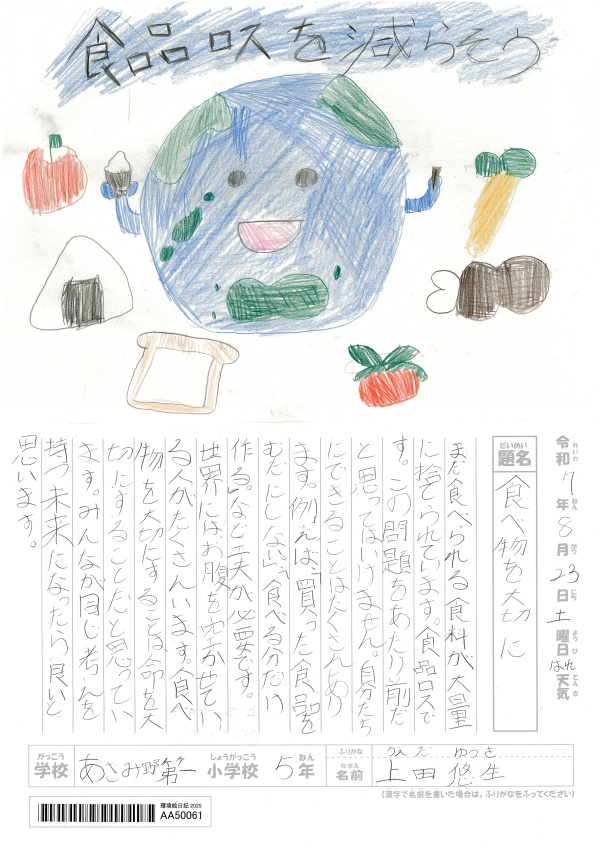 食品ロスを減らそう
令和7年8月23日土曜日はれ天気
れいわ ねん がつ にち ようび てんき
だいめい
題名
食べ物を大切に
まだ食べられる食料が大量
に捨てられています。食品ロスで
す。この問題をあたり前だ
と思ってはいけません。自分たち
にできることはたくさんあり
ます。例えば「買った食品を
むだにしない」「食べる分だけ
作る」など工夫が必要です。
世界にはお腹を空かせてい
る人がたくさんいます。食べ
物を大切にすることは命を大
切にすることだと思ってい
ます。みんなが同じ考えを
持つ未来になったら良いと
思います。
がっこう しょうがっこう ねん
学校 あさみ野第一 小学校 5年
ふりがな うえだ ゆうき
なまえ
名前 上田 悠生
(漢字で名前を書いた場合は、ふりがなをふってください)
環境絵日記 2025
AA50061